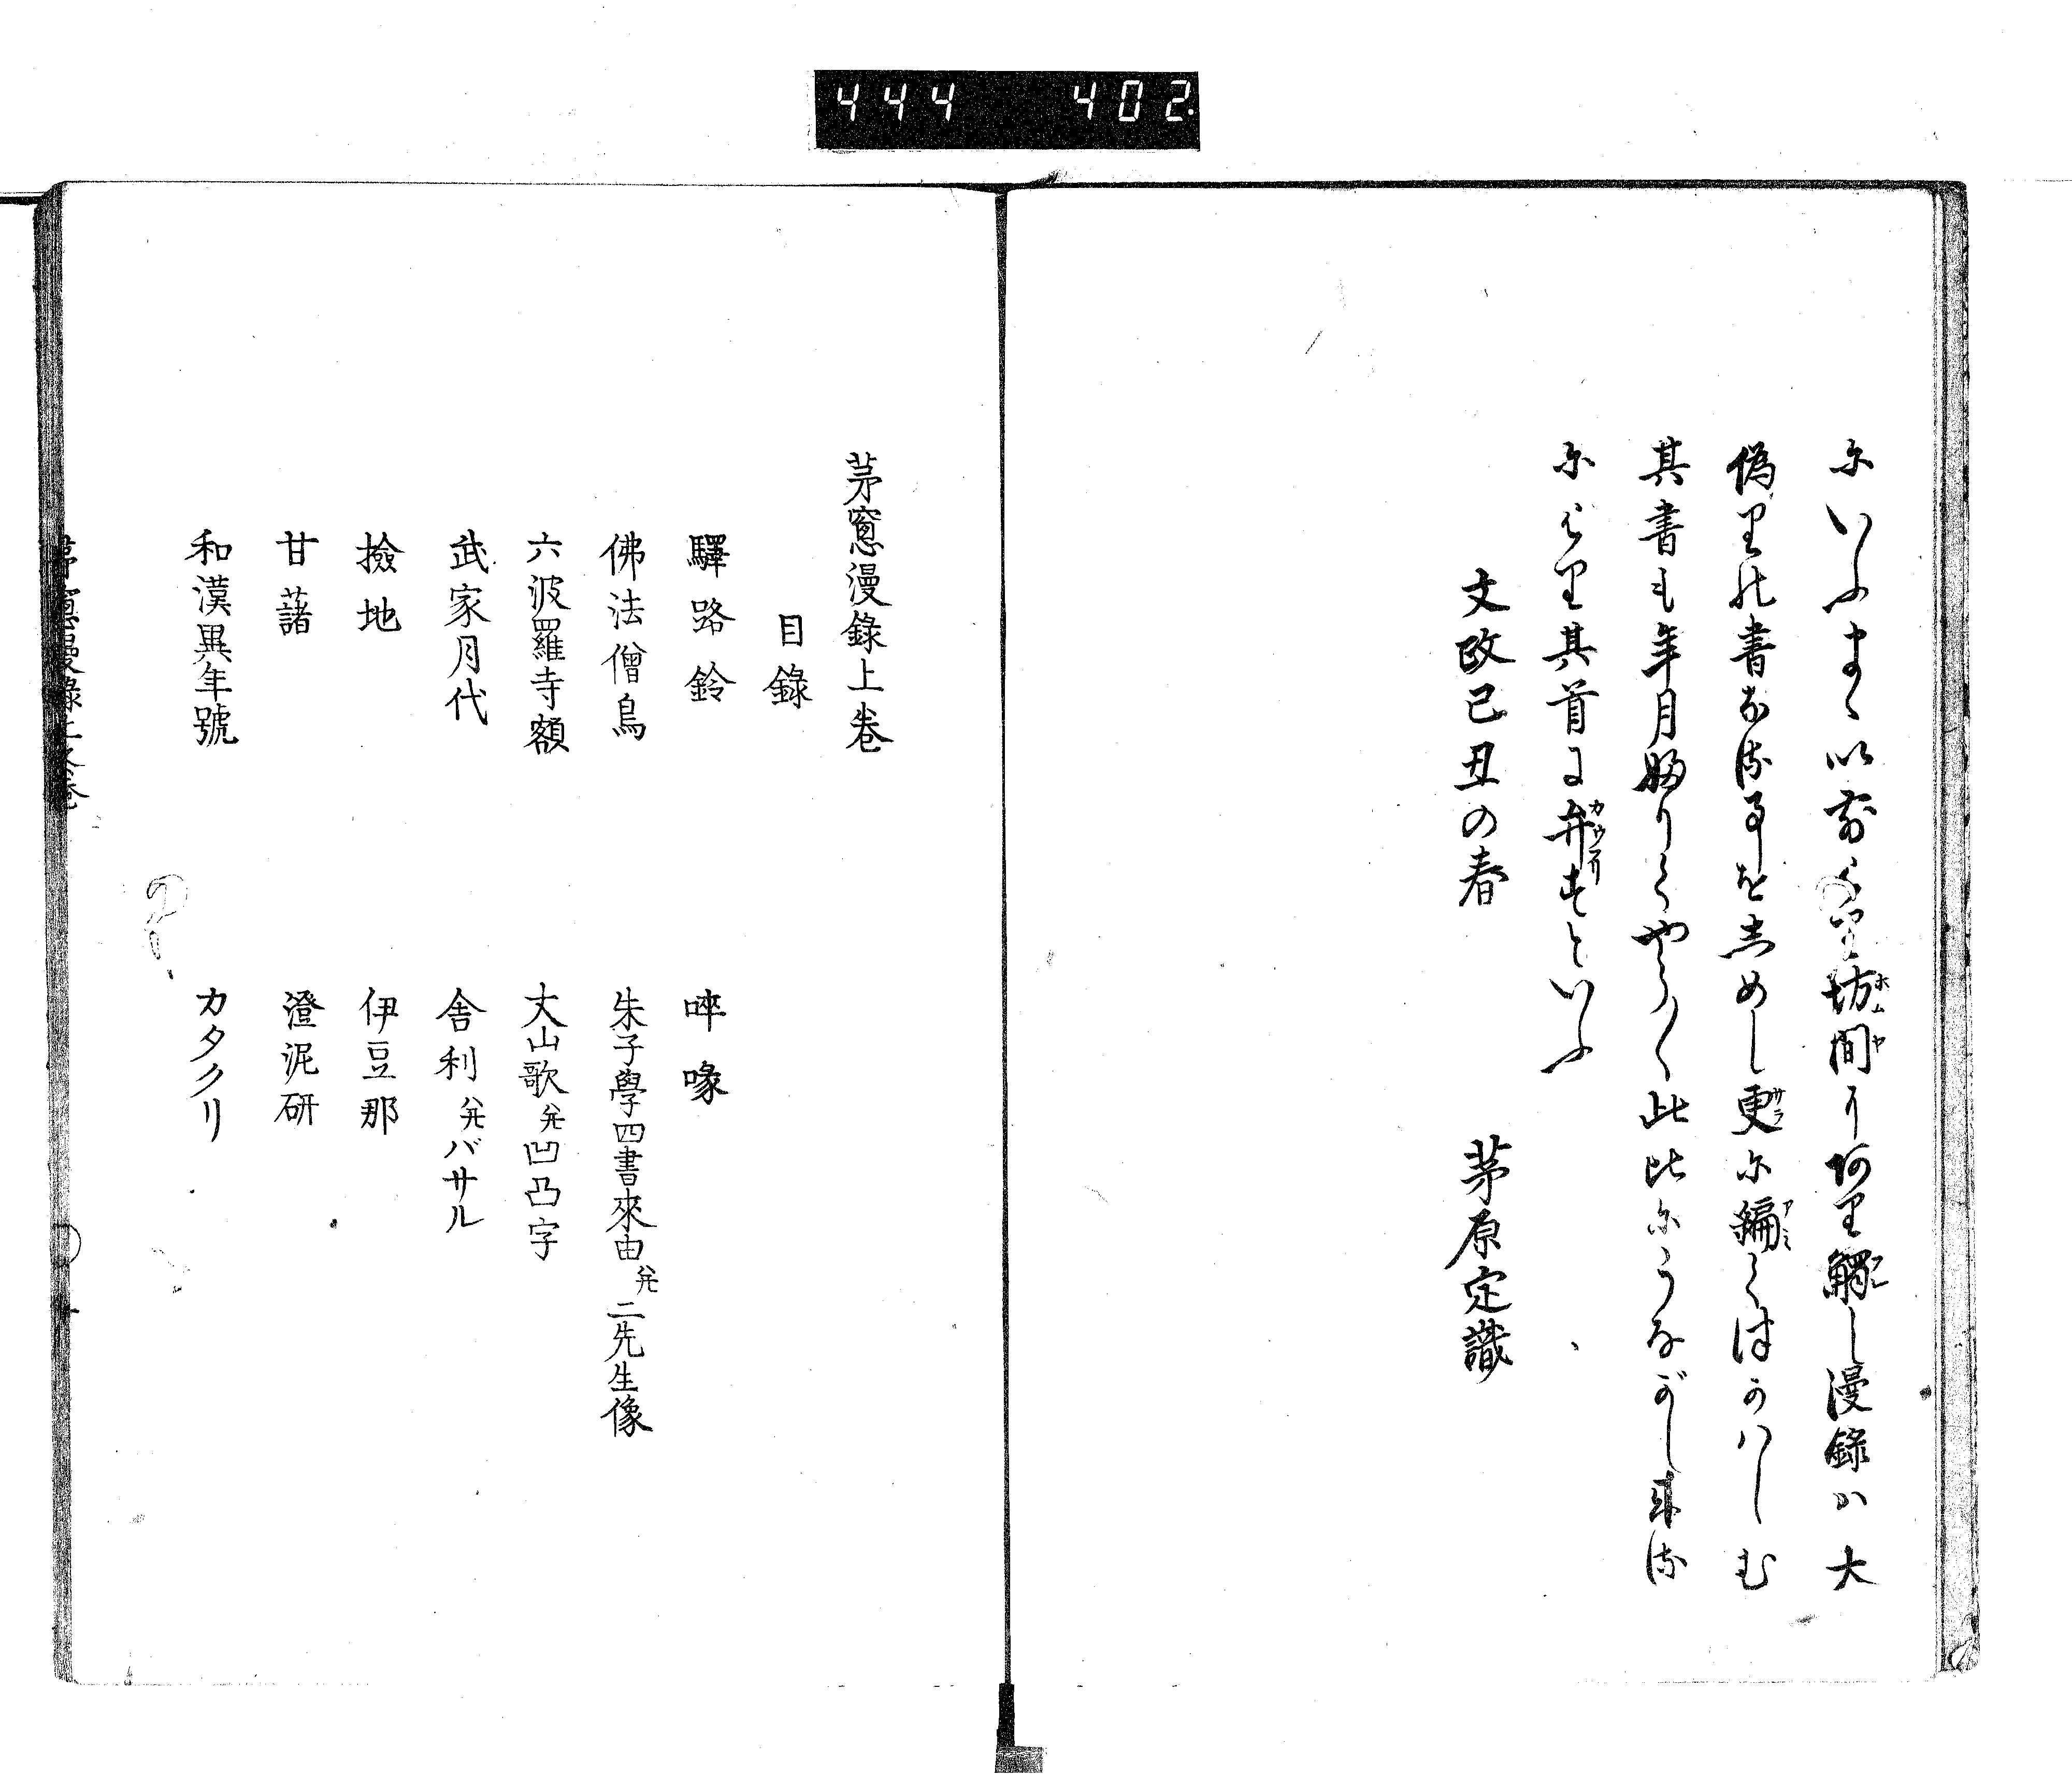 444 402
にいふまゝ以前より坊間にあり觸し漫錄は大
僞りの書なる事をしめし更に編てつかはしむ
其書も年月ふりてやう〳〵此比にうながし來る
によりて其首に弁すといふ
文政己丑の春 茅原定識
茅窻漫錄上巻
目錄
驛路鈴 啐啄
佛法僧鳥 朱子學四書來由 并 二先生像
六波羅寺額 大山歌 并 凹凸字
武家月代 舎利 并 バサル
撿地 伊豆那
甘藷 澄泥研
和漢異年號 カタクリ